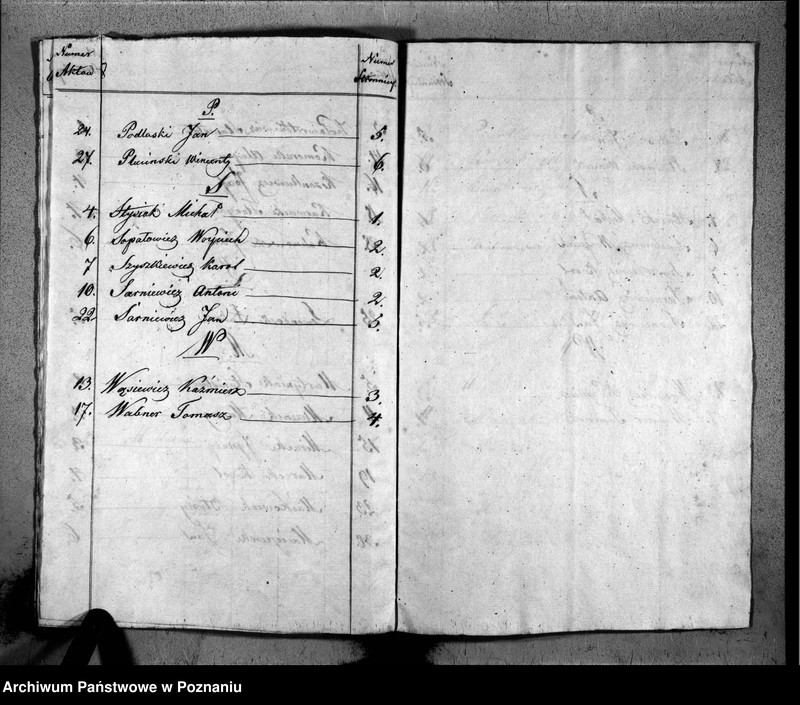 Numer Aktów
Numer Stronnicy
P.
24. Podlaski Jan 5.
27. Pluciński Wincenty 6.
S
4. Stysiak Michał 1.
6. Sopałowicz Woyciech 2.
7 Szyszkiewicz Karol 2.
10. Sarniewicz Antoni 2.
22 Sarniewicz Jan 5.
W
13. Wąsiewicz Kaźmierz 3.
17. Wabner Tomasz 4.
Archiwum Państwowe w Poznaniu